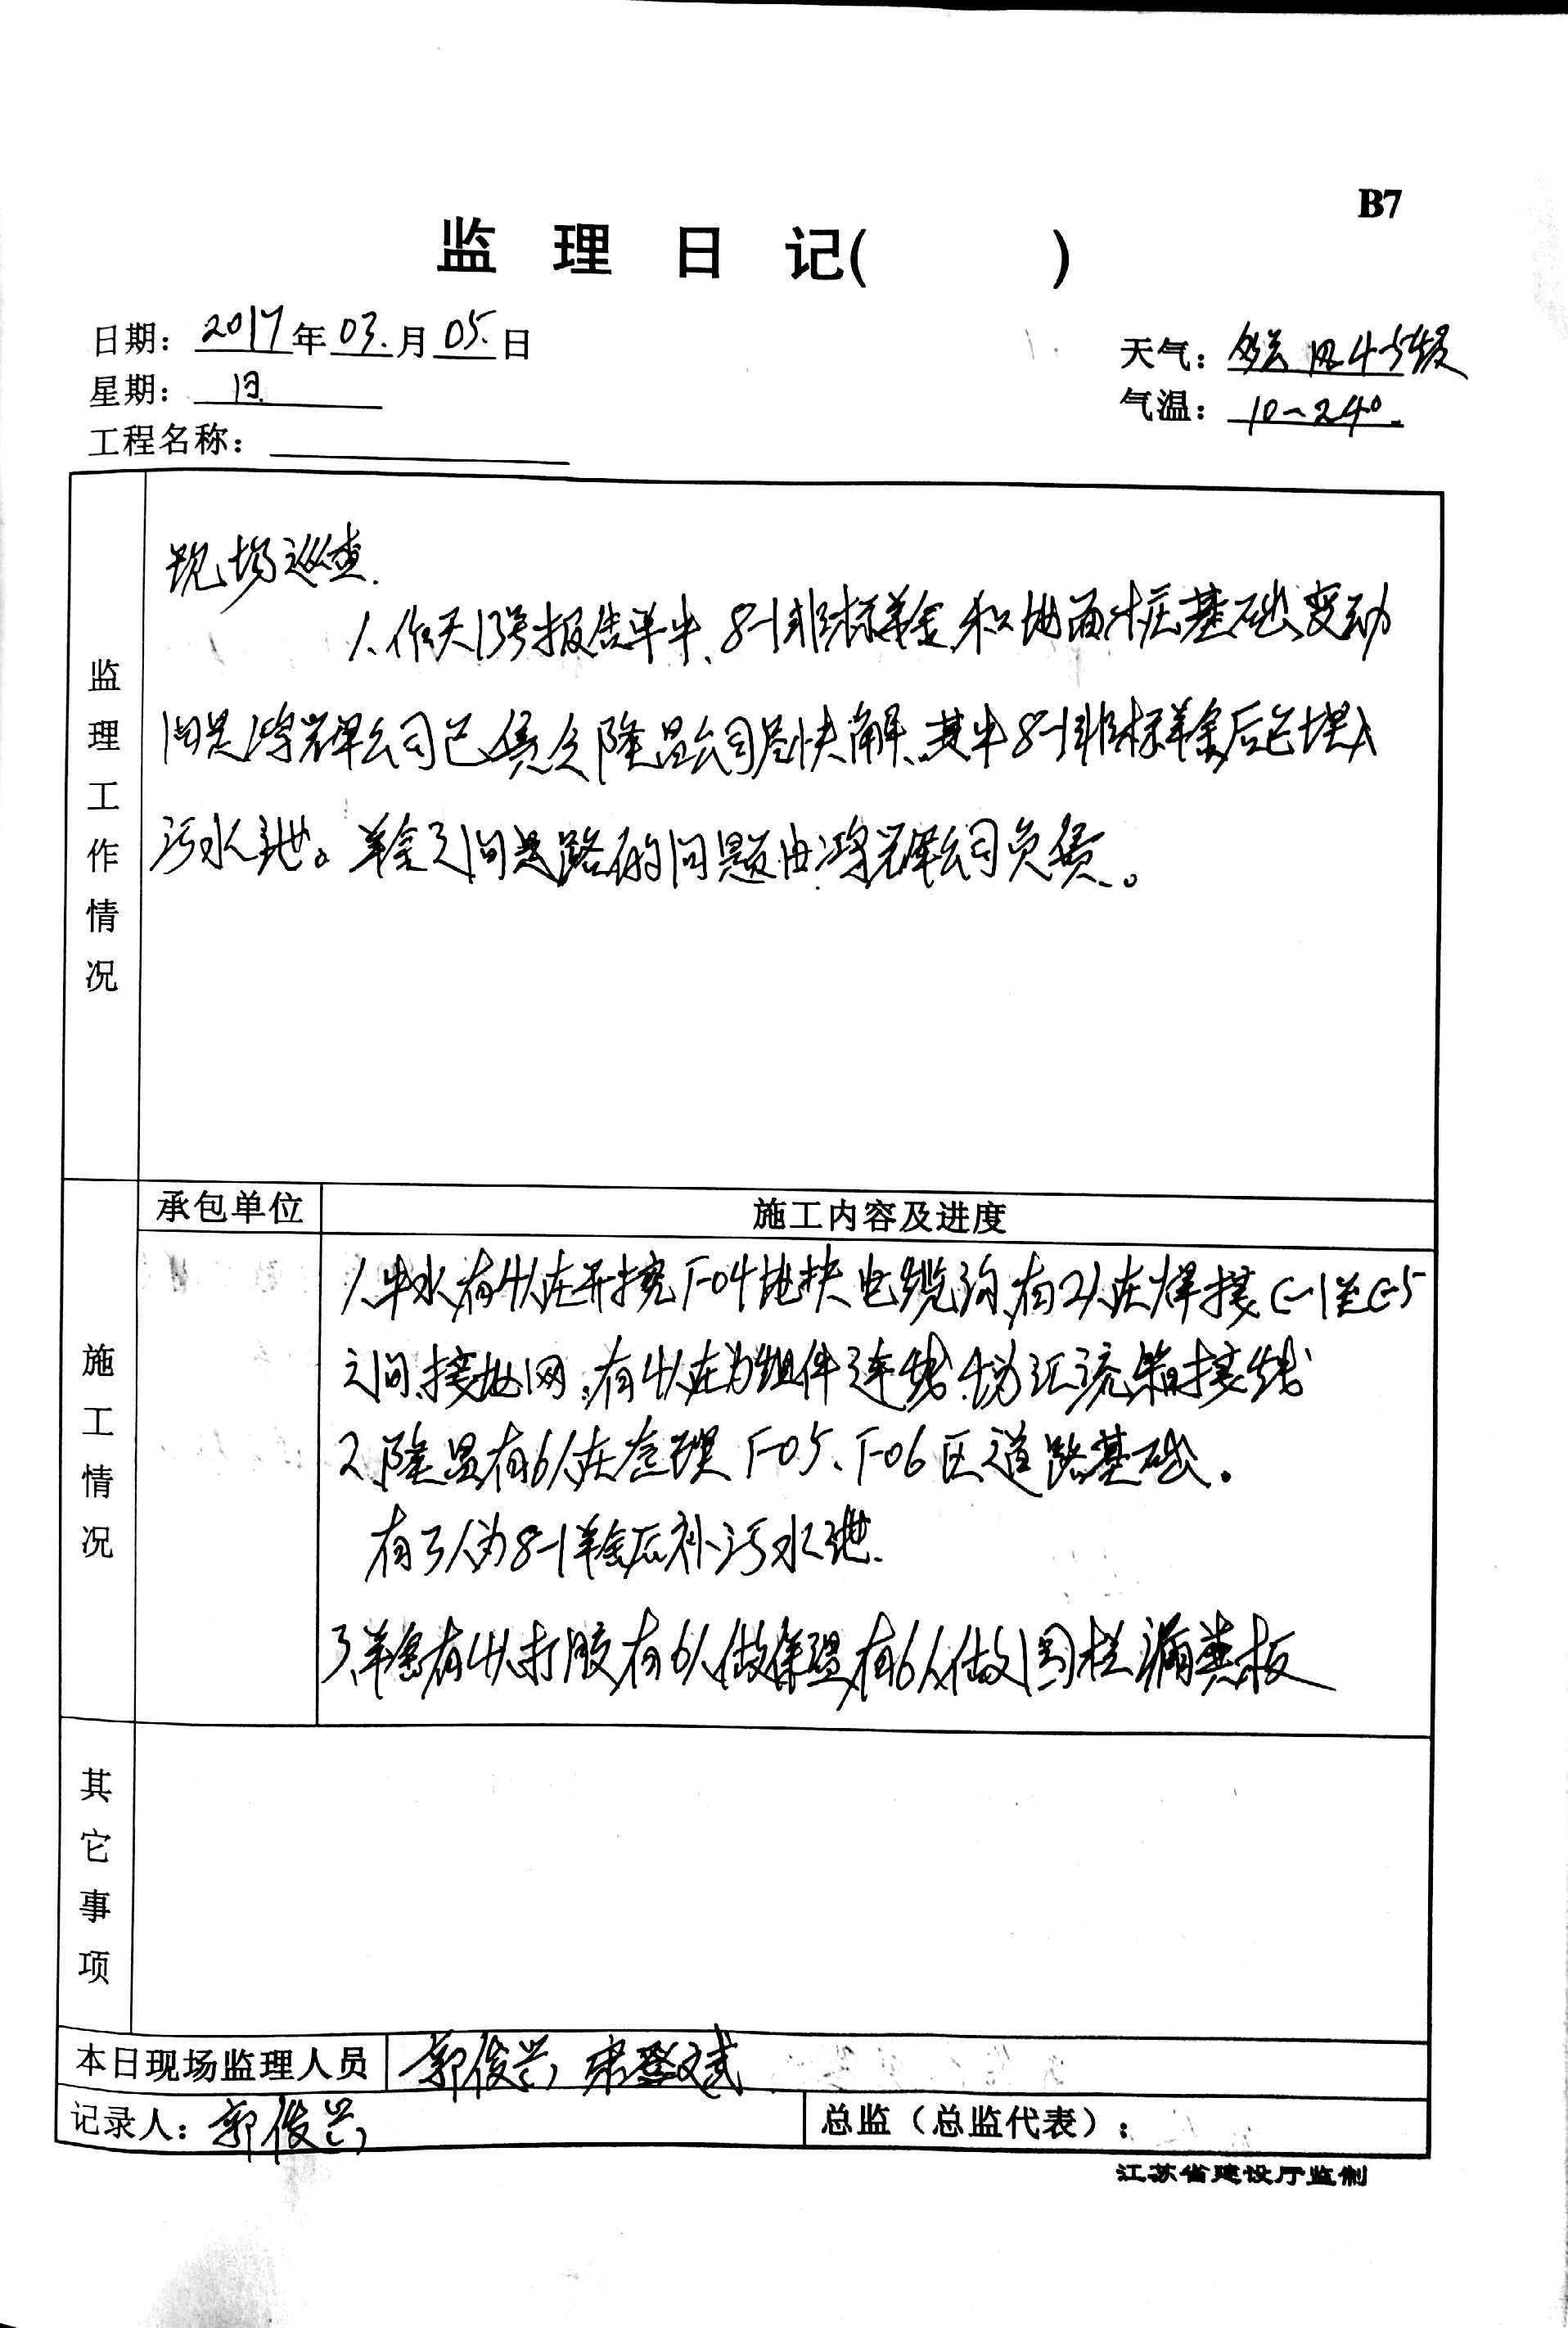 B7
监 理 日 记( )
日期：2017年03.月05.日
天气：多云 风4-5级
星期：日.
气温：10-24°.
工程名称：
监理工作情况
现场巡查.
1.昨天13号报告单中、8-1非标羊舍和地面桩基础变动
问题鸿辉公司已责令隆昌公司尽快解、其中8-1非标羊舍后已埋入
污水池。羊舍之间道路的问题由鸿辉公司负责。
承包单位 施工内容及进度
施工情况
1.中水有4人在开挖F-04地块电缆沟,有2人在焊接C-1至C-5
之间接地网,有4人在为组件连线,4人为汇流箱接线
2.隆昌有6人在处理F-05、F-06区道路基础.
有3人为8-1羊舍后补污水池.
3.羊舍有4人打胶,有6人做保温,有6人做围栏漏粪板
其它事项
本日现场监理人员 郭俊兴 宋登斌
记录人：郭俊兴 总监（总监代表）：
江苏省建设厅监制